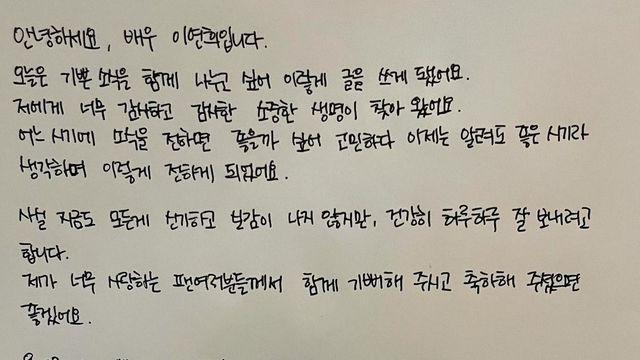 안녕하세요, 배우 이연희입니다.
오늘은 기쁜 소식을 함께 나누고 싶어 이렇게 글을 쓰게 됐어요.
저에게 너무 감사하고 감사한 소중한 생명이 찾아 왔어요.
어느 시기에 소식을 전하면 좋을까 싶어 고민하다 이제는 알려도 좋은 시기라
생각하며 이렇게 전하게 되었어요.
사실 지금도 모든게 신기하고 실감이 나지 않지만, 건강히 하루하루 잘 보내려고
합니다.
제가 너무 사랑하는 팬여러분들께서 함께 기뻐해 주시고 축하해 주셨으면
좋겠어요.